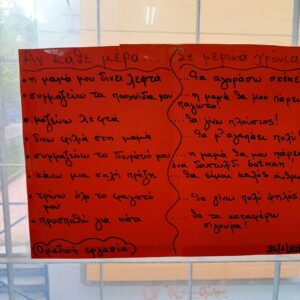 Αν κάθε μέρα
Σε μερικά χρόνια
• η μαμά μου δίνει λεφτά
...θα αγοράσω
• συμμαζεύω τα παιχνίδια μου
...η μαμά θα μου πάρει παγωτό!
• μαζεύω λεφτά
...θα γίνω πλούσιος!
• δίνω φιλιά στη μαμά
...θα μ' αγαπάει πολύ
• συμμαζεύω το δωμάτιό μου
...η μαμά θα μου πάρει
ένα δαχτυλίδι batman!
• κάνω μια καλή πράξη
...θα είμαι καλός άνθρω
• τρώω όλο το φαγητό
μου
...θα γίνω πολύ ψηλός
• προσπαθώ για κάτι
...θα τα καταφέρω
σίγουρα!
(Ομαδική εργασία)